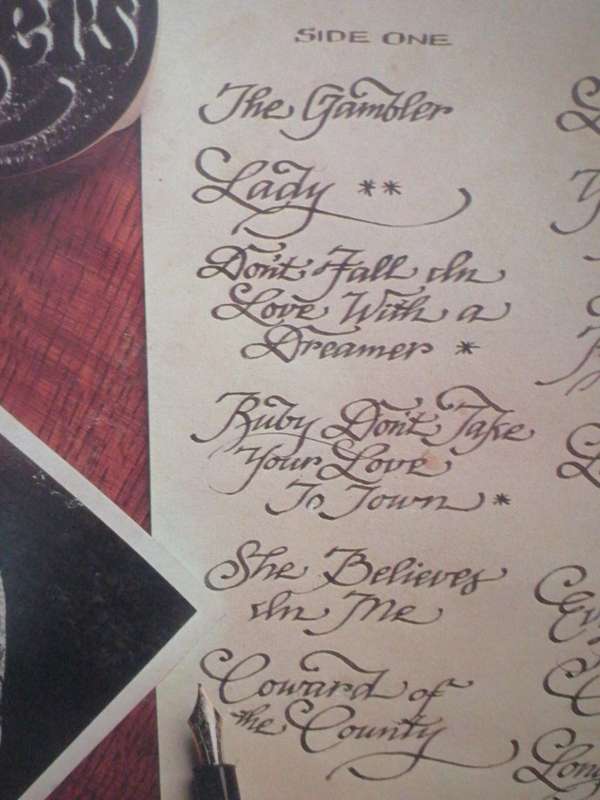 SIDE ONE
The Gambler
Lady **
Don't Fall In
Love With a
Dreamer *
Ruby Don't Take
Your Love
To Town *
She Believes
In Me
Coward of
the County